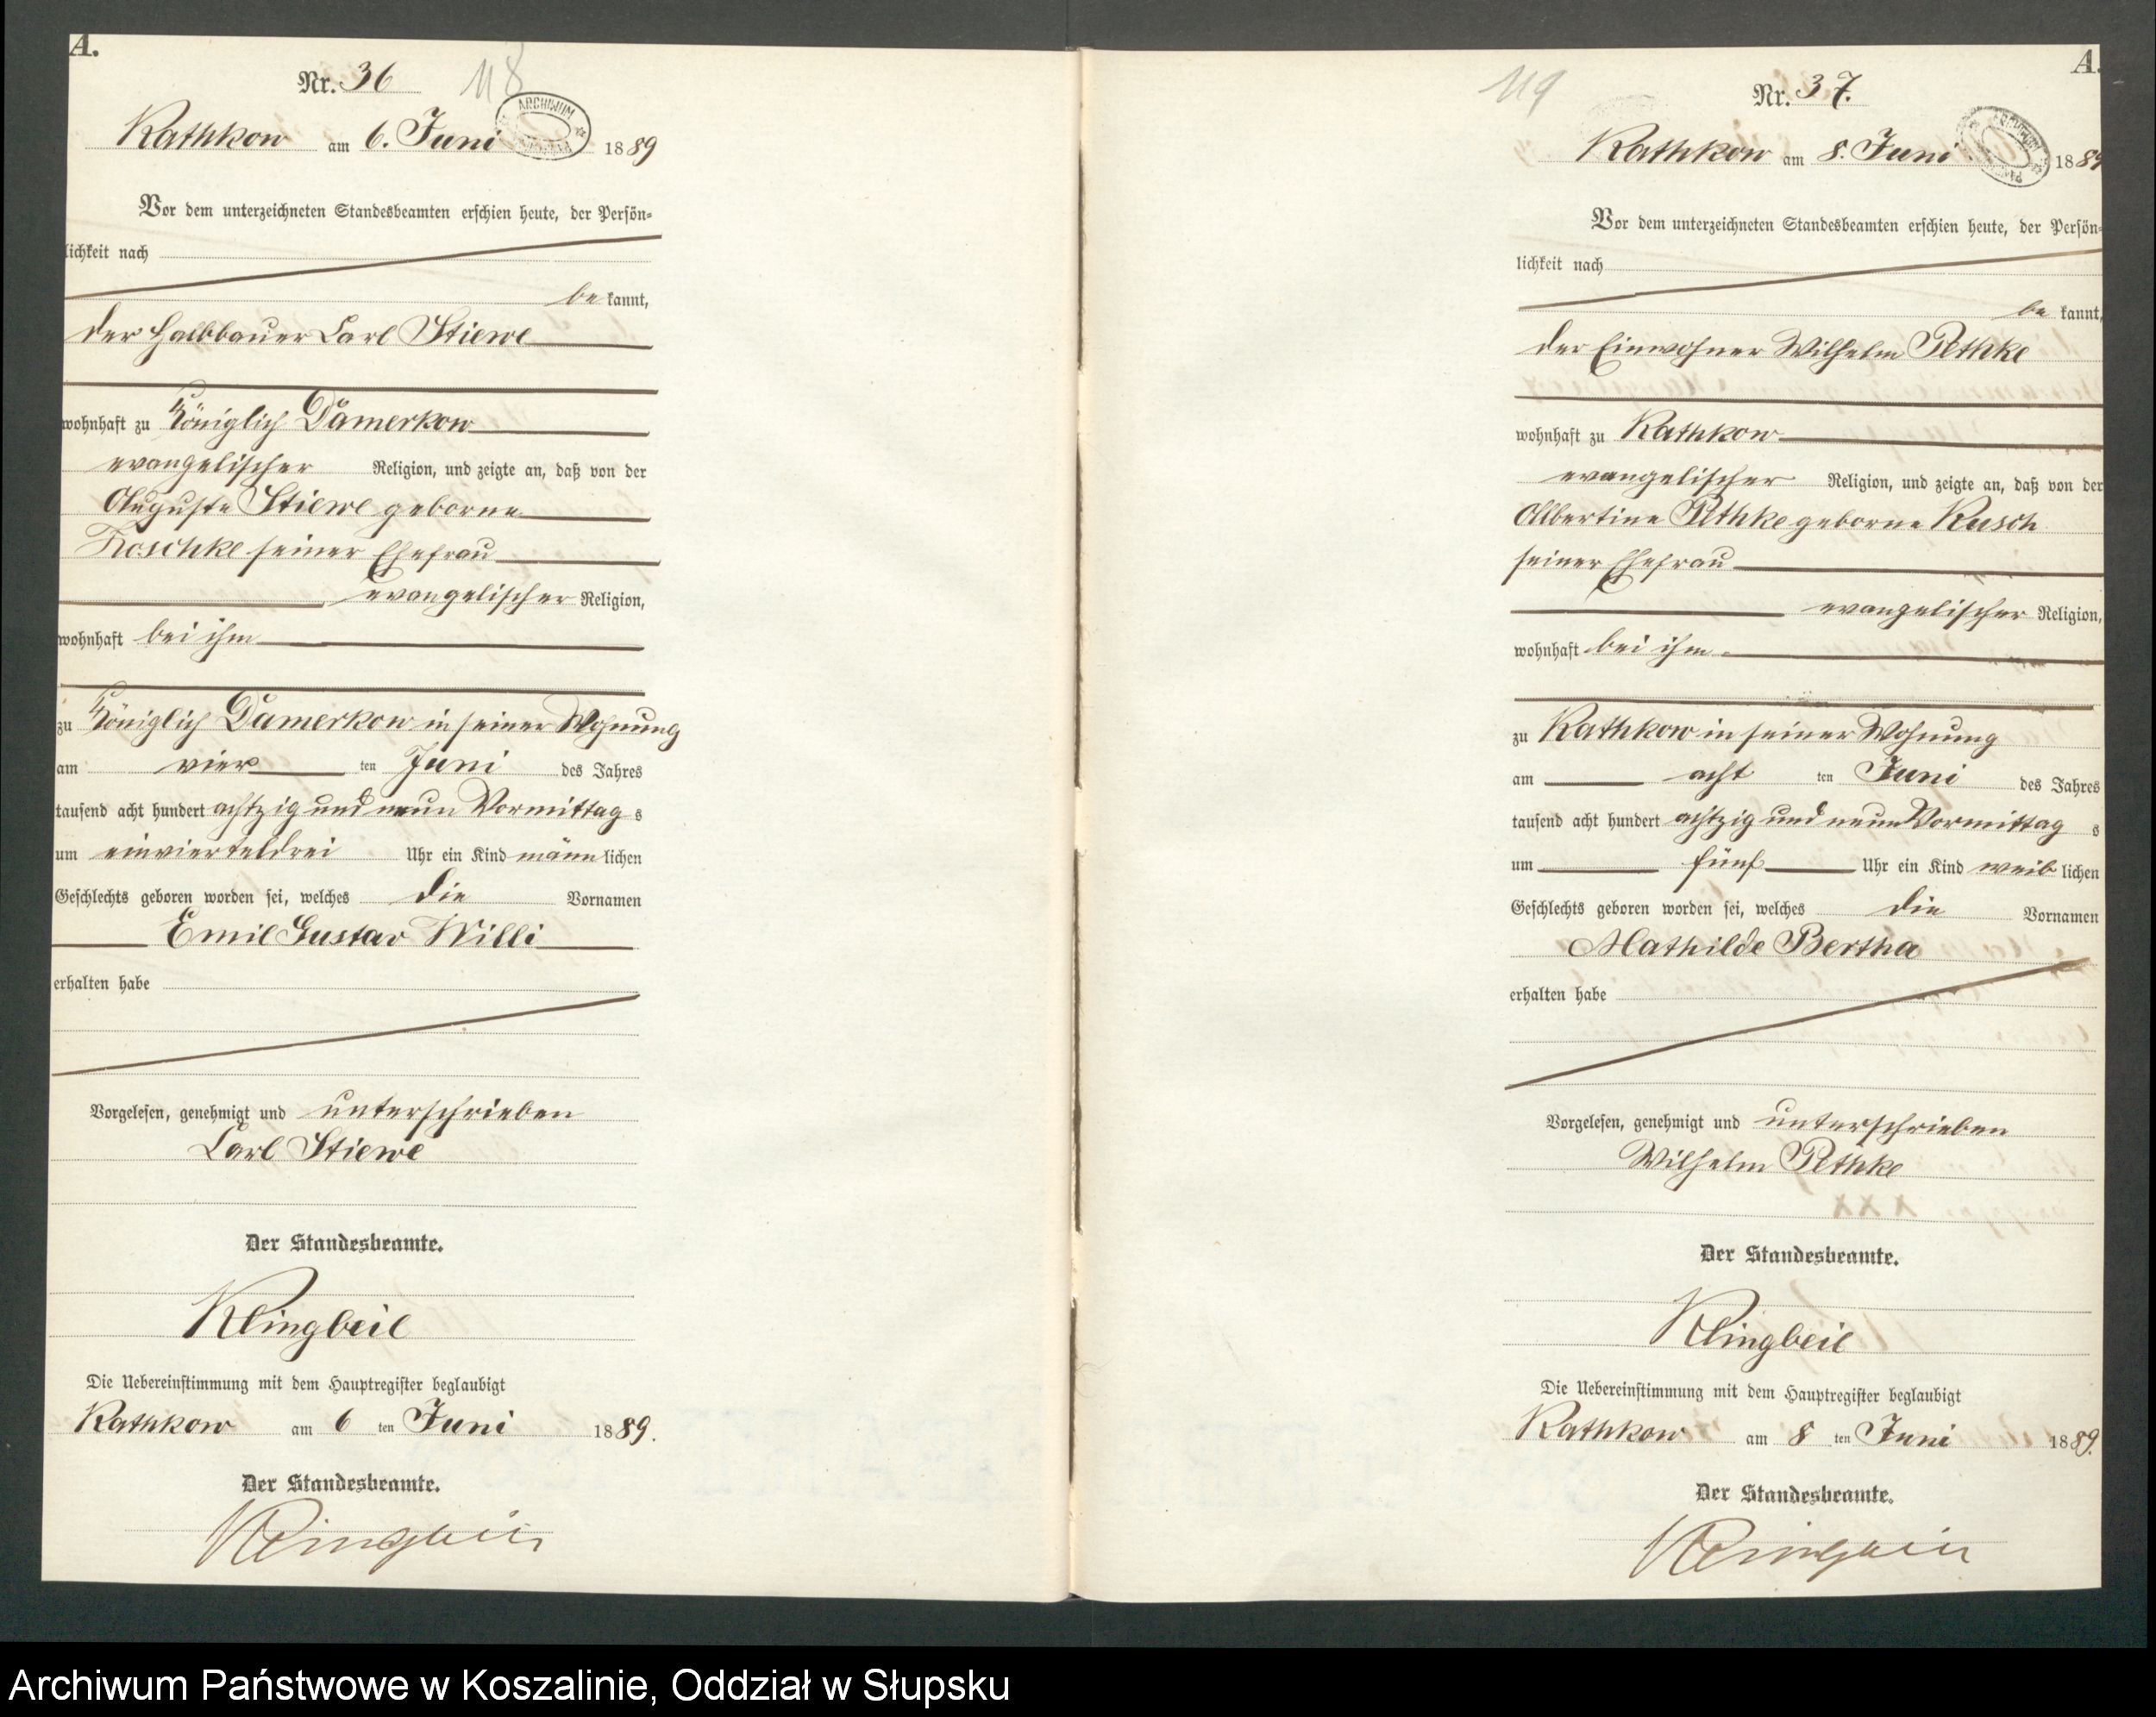 A.
Nr. 36
118
ARCHIWUM
Rathkow am 6. Juni 1889
Vor dem unterzeichneten Standesbeamten erschien heute, der Persön-
lichkeit nach
be kannt,
der Halbbauer Carl Stiewe
wohnhaft zu Königlich Damerkow
evangelischer Religion, und zeigte an, daß von der
Auguste Stiewe geborne
Koschke seiner Ehefrau
evangelischer Religion,
wohnhaft bei ihm
zu Königlich Damerkow in seiner Wohnung
am vier ten Juni des Jahres
tausend acht hundert achtzig und neun Vormittag s
um einvierteldrei Uhr ein Kind männ lichen
Geschlechts geboren worden sei, welches die Vornamen
Emil Gustav Willi
erhalten habe
Vorgelesen, genehmigt und unterschrieben
Carl Stiewe
Der Standesbeamte.
Klingbeil
Die Uebereinstimmung mit dem Hauptregister beglaubigt
Rathkow am 6 ten Juni 1889.
Der Standesbeamte.
Klingbeil
A.
119
Nr. 37.
Rathkow am 8. Juni 1889
Vor dem unterzeichneten Standesbeamten erschien heute, der Persön-
lichkeit nach
be kannt,
der Einwohner Wilhelm Pethke
wohnhaft zu Rathkow
evangelischer Religion, und zeigte an, daß von der
Albertine Pethke geborne Kusch
seiner Ehefrau
evangelischer Religion,
wohnhaft bei ihm
zu Rathkow in seiner Wohnung
am acht ten Juni des Jahres
tausend acht hundert achtzig und neun Vormittag s
um fünf Uhr ein Kind weib lichen
Geschlechts geboren worden sei, welches die Vornamen
Mathilde Bertha
erhalten habe
Vorgelesen, genehmigt und unterschrieben
Wilhelm Pethke
Der Standesbeamte.
Klingbeil
Die Uebereinstimmung mit dem Hauptregister beglaubigt
Rathkow am 8 ten Juni 1889.
Der Standesbeamte.
Klingbeil
Archiwum Państwowe w Koszalinie, Oddział w Słupsku